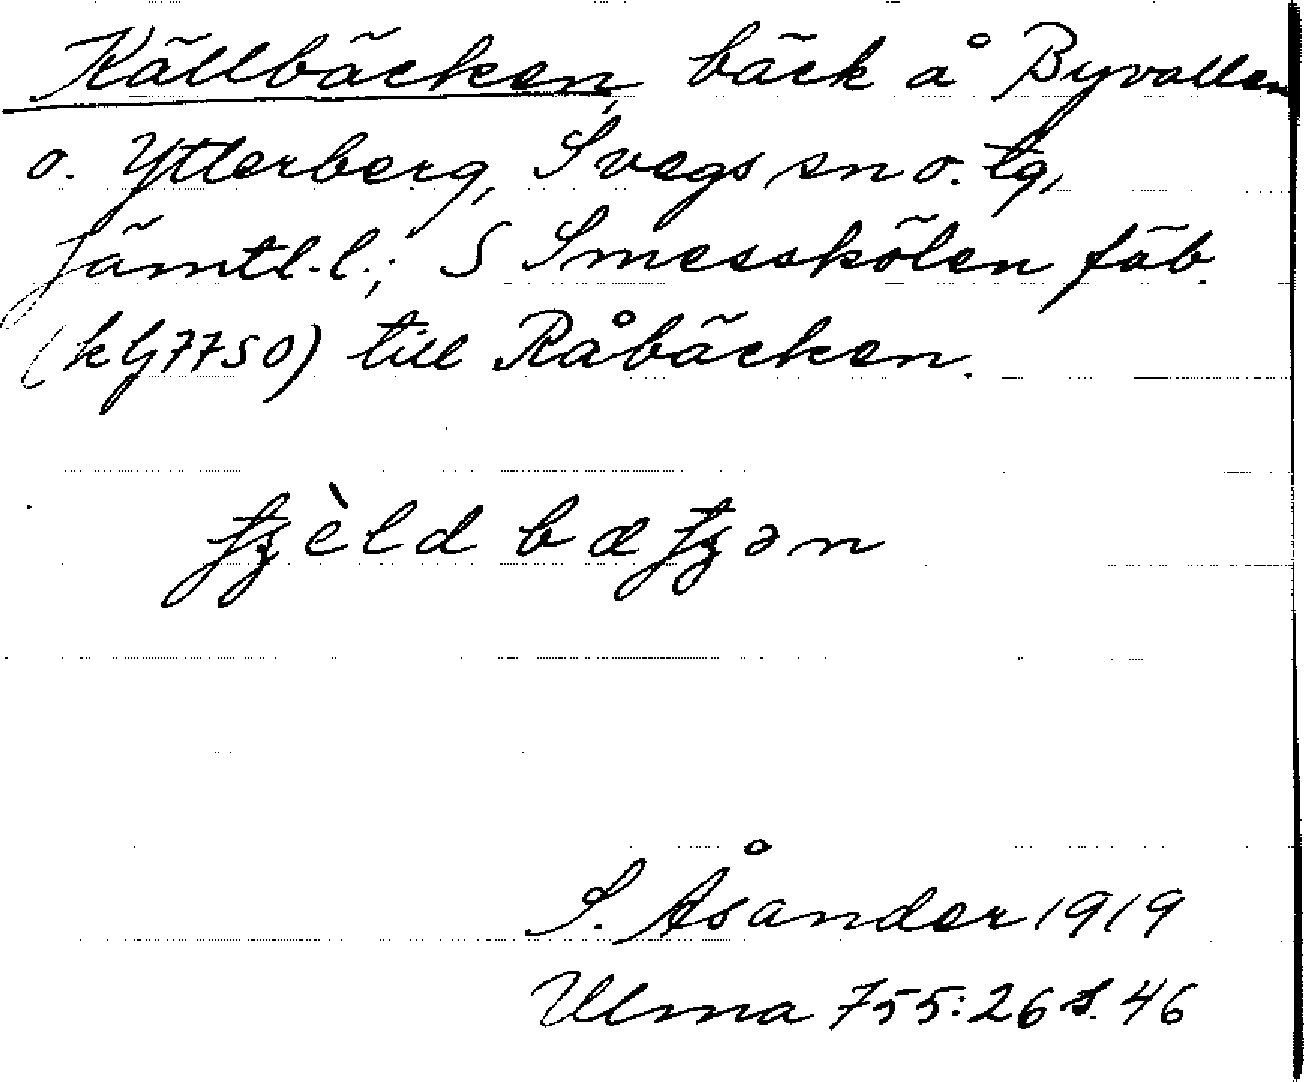 Källbäcken, bäck å Byvallen
o. Ytterberg, Svegs sn o. tg,
Jämtl. l.; S Smesskölen fäb.
(kG7750) till Råbäcken.
tjèld bætjən
S. Åsander 1919
Ulma 755:26 s. 46